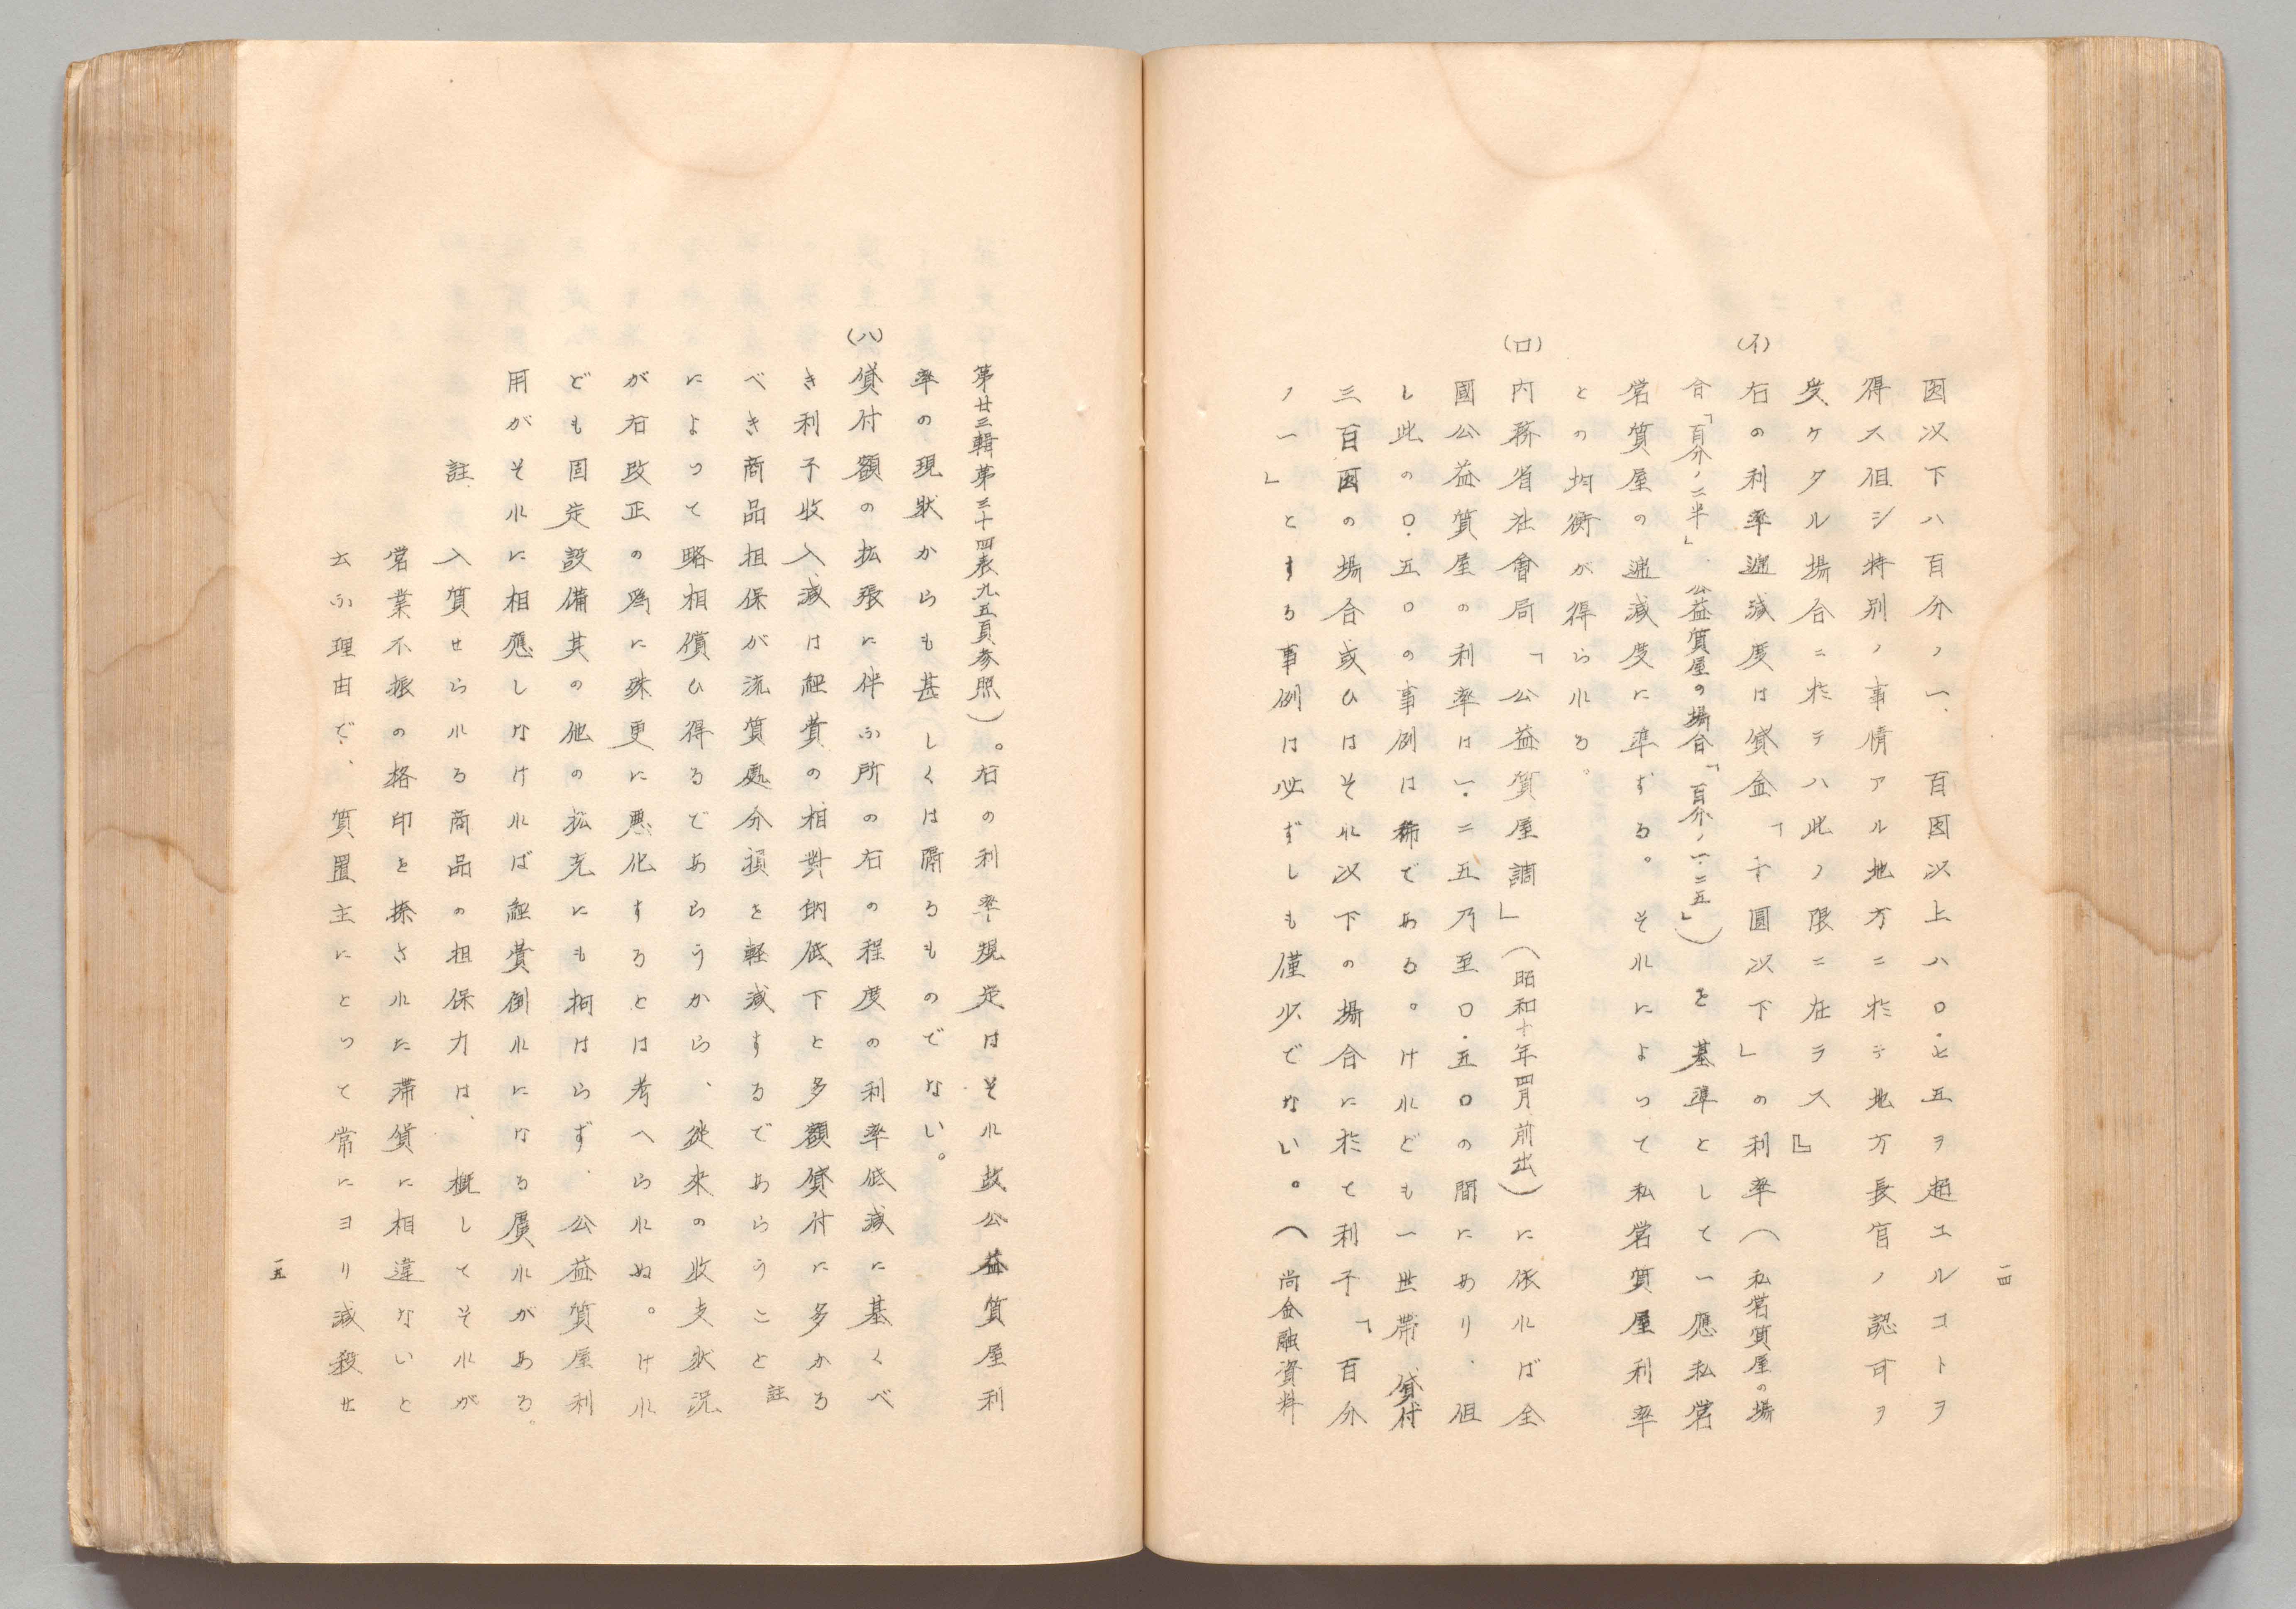 一四
圓以下ハ百分ノ一、百圓以上ハ〇・七五ヲ超エルコトヲ
得ス但シ特別ノ事情アル地方ニ於テ地方長官ノ認可ヲ
受ケタル場合ニ於テハ此ノ限ニ在ラス』
(イ)右の利率逓減度は貸金「千圓以下」の利率(私営質屋の場
合「百分ノ二半」、公益質屋の場合「百分ノ一・二五」)を基準として一應私営
営質屋の逓減度に準ずる。それによって私営質屋利率
との均衡が得られる。
(ロ)内務省社會局「公益質屋調」(昭和十年四月前出)に依れば全
國公益質屋の利率は一・二五乃至〇・五〇の間にあり、但
し此の〇・五〇の事例は稀である。けれども一世帯貸付
三百圓の場合或ひはそれ以下の場合に於て利子「百分
ノ一」とする事例は必ずしも僅少でない。(尚金融資料
第廿三輯第三十四表九五頁参照)。右の利率規定はそれ故公益質屋利
率の現状からも甚しくは隔るものでない。
(ハ)貸付額の拡張に伴ふ所の右の程度の利率低減に基くべ
き利子収入減は経費の相對的低下と多額貸付に多かる
べき商品担保が流質処分損を軽減するであらうこと註
によって略相償ひ得るであらうから、従来の収支状況
が右改正の為に殊更に悪化するとは考へられぬ。けれ
ども固定設備其の他の拡充にも拘はらず、公益質屋利
用がそれに相應しなければ経費倒れになる虞れがある。
註 入質せられる商品の担保力は、概してそれが
営業不振の格印を捺された滞貨に相違ないと
云ふ理由で、質置主にとって常にヨリ減殺せ
一五